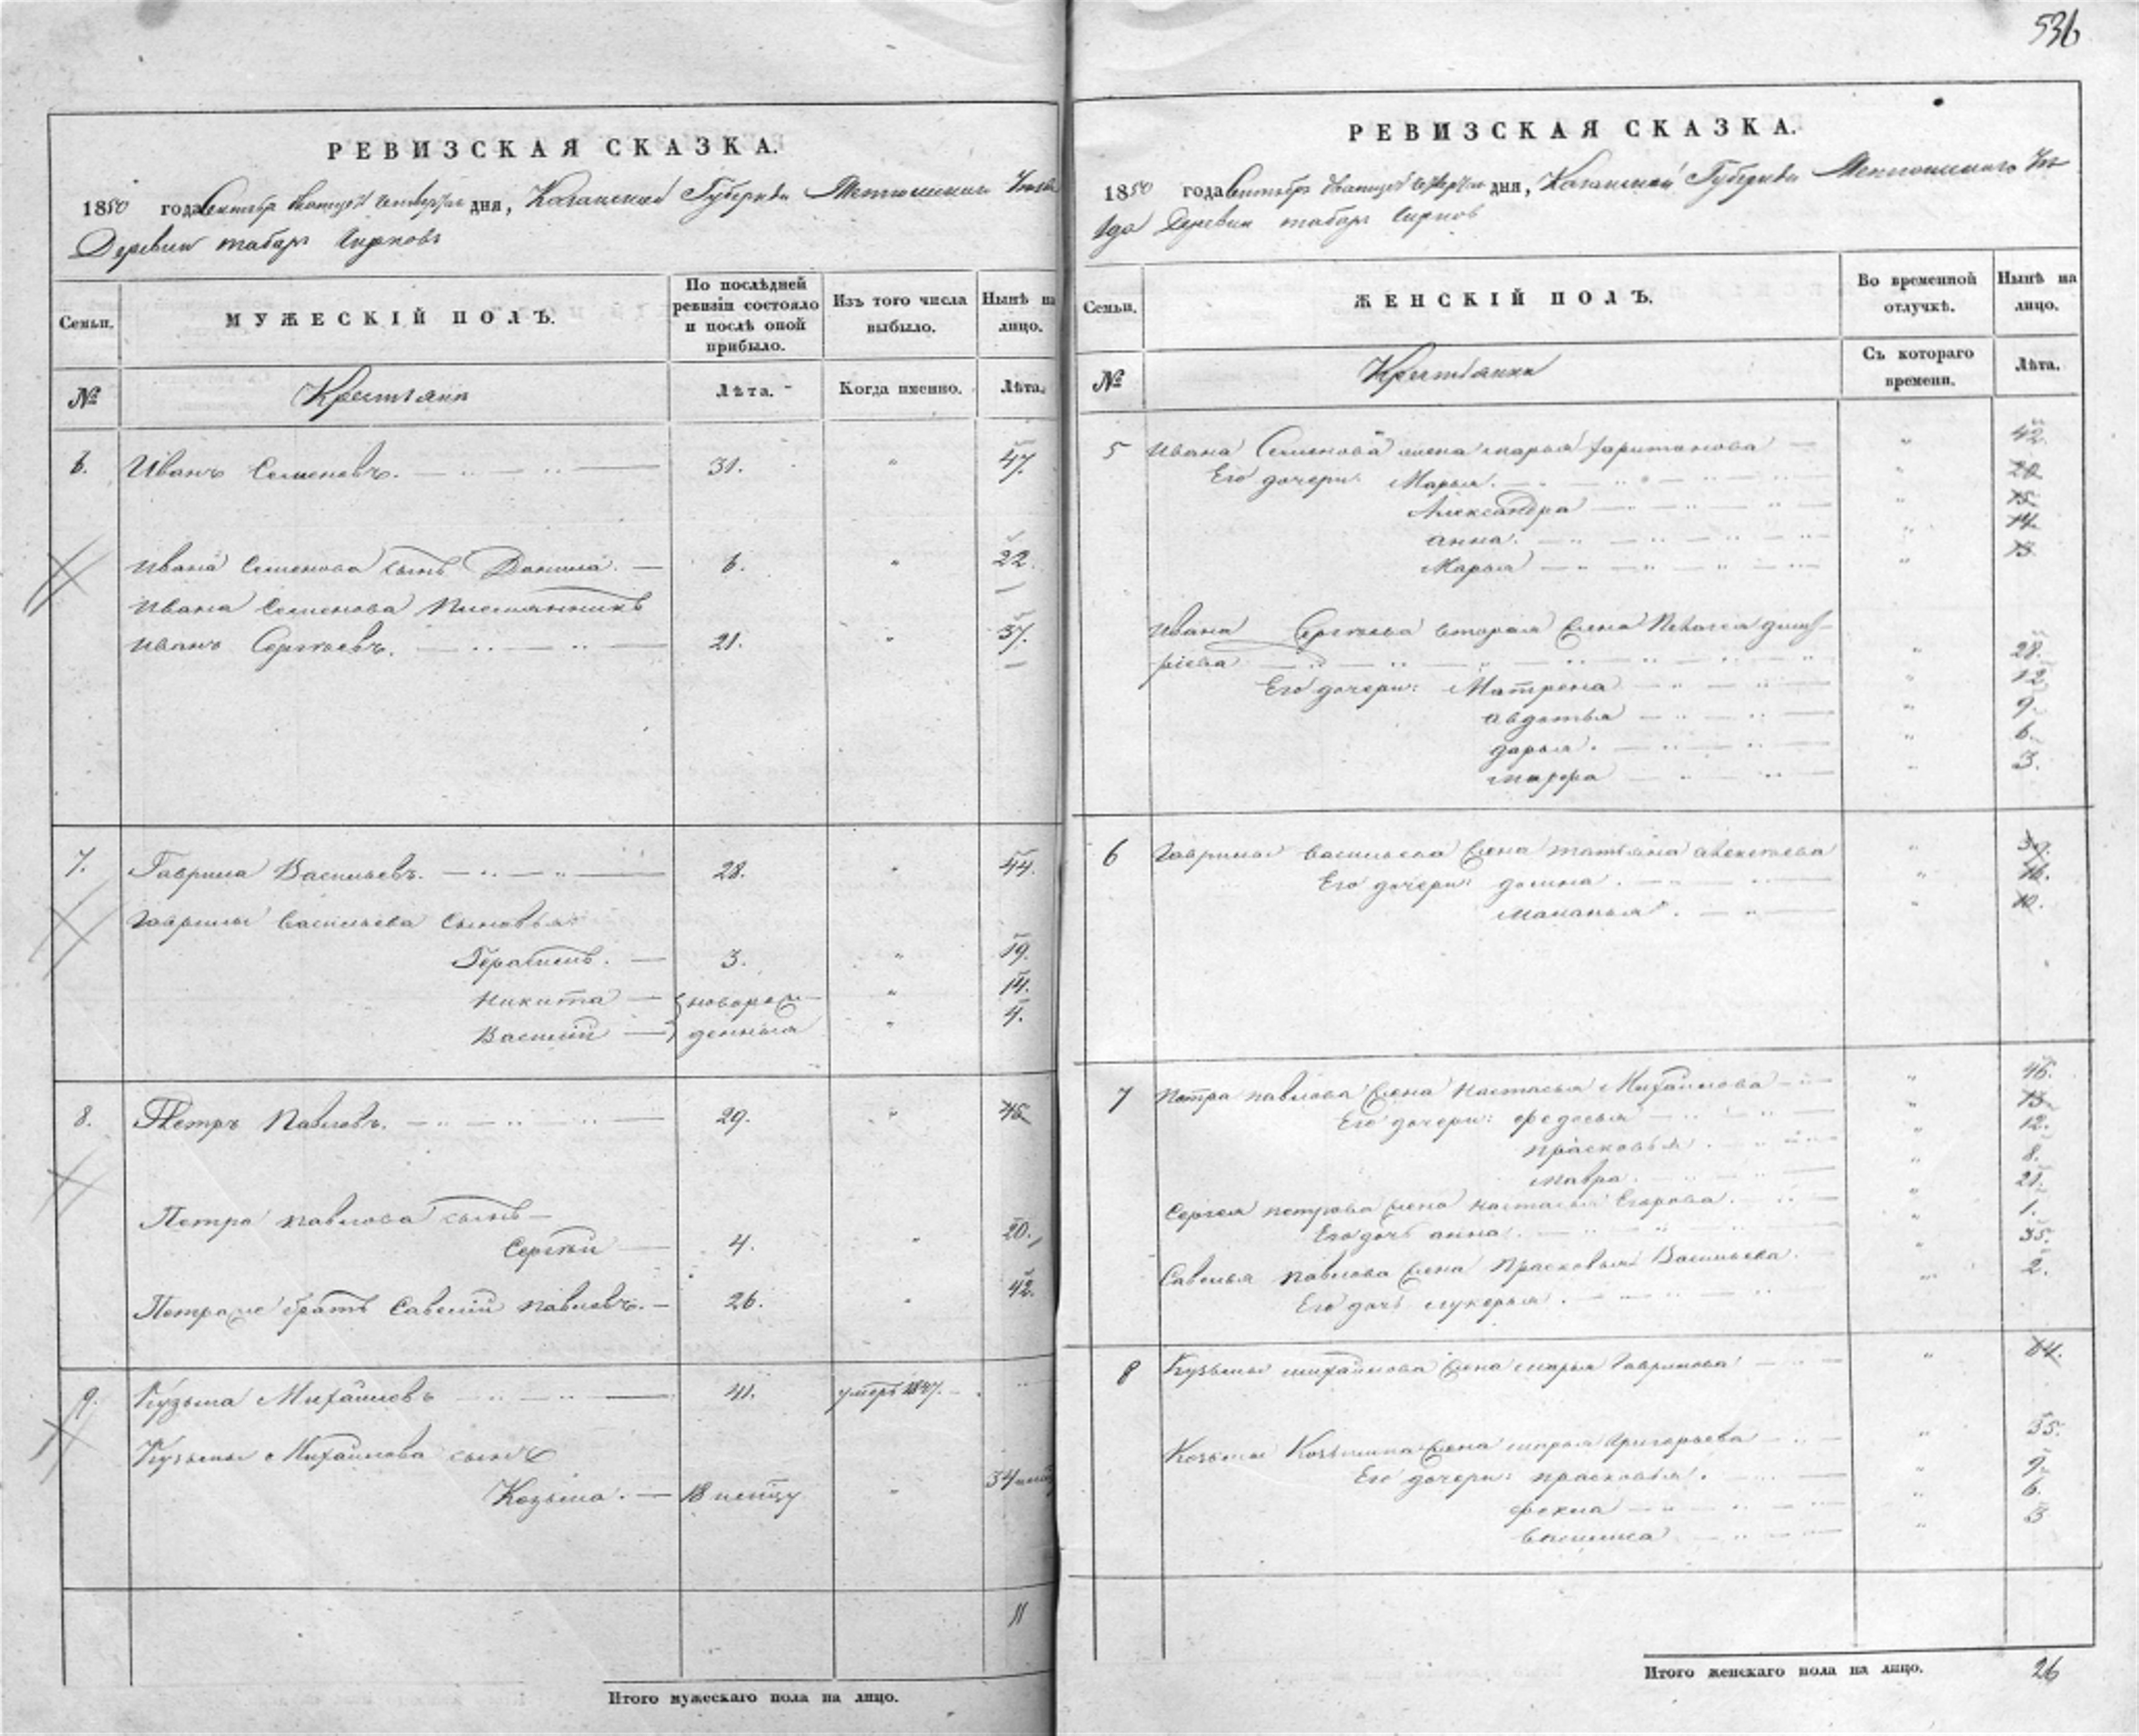 536
РЕВИЗСКАЯ СКАЗКА.
1850 года Сентября дня, Казанской Губерніи
Деревни табарь Чирковъ
Семьи. МУЖЕСКІЙ ПОЛЪ. По послѣдней ревизіи состояло и послѣ оной прибыло. Изъ того числа выбыло. Нынѣ на лицо.
№ Крестьяни Лѣта. Когда именно. Лѣта.
6. Иванъ Семеновъ. 31. " 47.
Ивана Семенова сынъ Данила. 6. " 22.
Ивана Семенова Племянникъ
Иванъ Сергѣевъ. 21. " 37.
7. Гаврила Васильевъ. 28. " 44.
Гаврилы Васильева сыновья:
Герасимъ. 3. " 19.
Никита новорож- " 14.
Василій денныя " 4.
8. Петръ Павловъ. 29. " 45
Петра Павлова сынъ
Сергѣй 4. " 20.
Петра же братъ Савелій Павловъ. 26. " 42.
9. Кузьма Михайловъ 41. умеръ 1847.
Кузьмы Михайлова сынъ
Козьма. 18 " 34
11
Итого мужескаго пола на лицо.
РЕВИЗСКАЯ СКАЗКА.
1850 года Сентября дня, Казанской Губерніи
Деревни табарь Чирков
Семьи. ЖЕНСКІЙ ПОЛЪ. Во временной отлучкѣ. Нынѣ на лицо.
№ Крестьянки Съ котораго времени. Лѣта.
5 Ивана Семенова жена марья Харитонова " 42.
Его дочери: Марья. " 20
Александра " 15.
анна. " 14.
Марья " 13.
Ивана Сергѣева вторая жена
" 28.
Его дочери: Матрена " 12
авдотья " 9.
дарья. " 6.
марфа " 3.
6 Гаврилы Васильева жена татьяна алексѣева "
Его дочери: домна. " 16.
маланья. " 10.
7 Петра павлова жена настасья Михайлова " 46.
Его дочери: федосья " 15
прасковья. " 12.
мавра. " 8.
Сергея петрова жена настасья Егорова. " 21.
Его дочь анна. " 1.
Савелья павлова жена Прасковья Васильева. " 35.
Его дочь лукерья. " 2.
8 Кузьмы михайлова жена марья Гаврилова " 64.
Козьмы Козьмина жена марья Григорьева " 35.
Его дочери: прасковья. " 9.
фекла " 6.
василиса " 3
Итого женскаго пола на лицо. 26